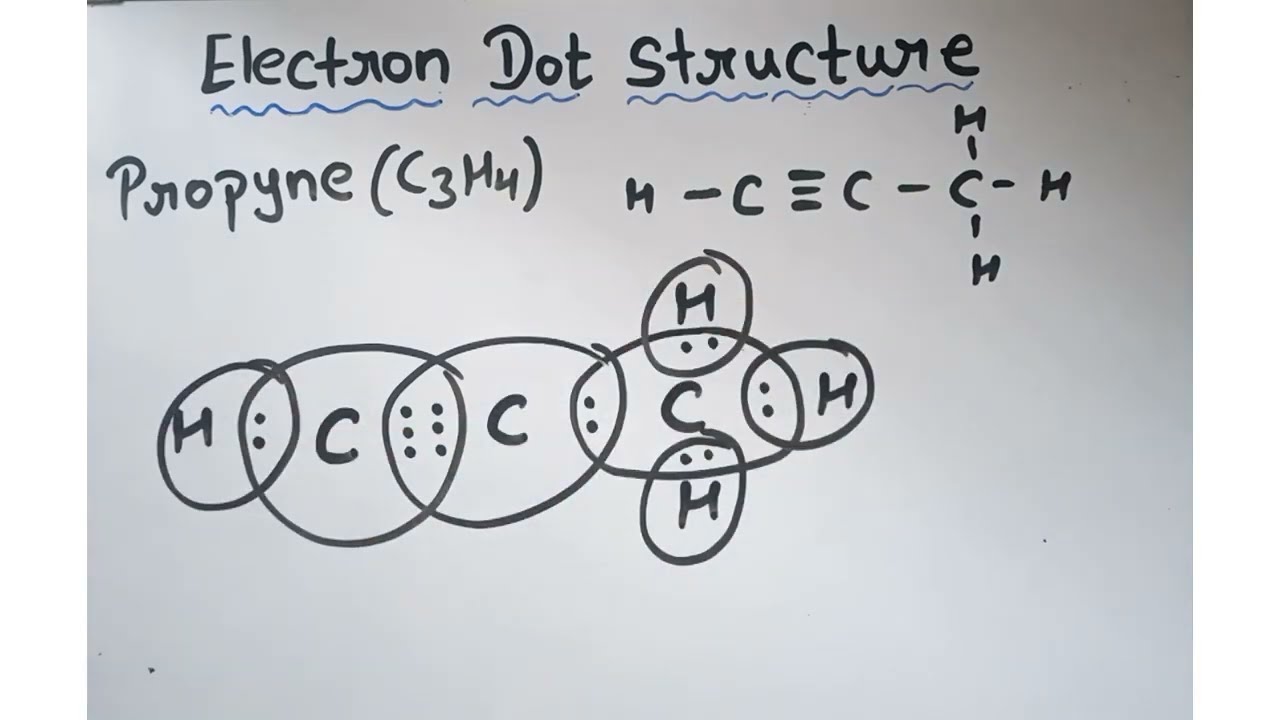 Electron Dot Structure
Propyne (C3H4)
H
H - C ≡ C - C - H
H
H
H : C ⫶⫶ C : C : H
H